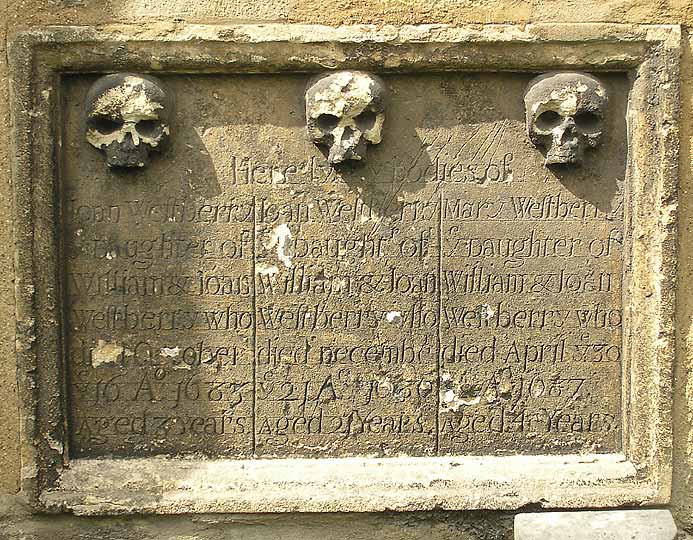 Here ly bodies of
Joan Weſtberry
yͤ Daughter of
William & Joan
Weſtberry who
October
yͤ 16 Aº
Aged Years
Joan Weſtberry
yͤ Daughtʳ of
William & Joan
Weſtberry who
died December
yͤ 21 Aº
Aged Years
Mary Weſtberry
yͤ Daughter of
William & Joan
Weſtberry who
died April yͤ 30
Aº
Aged Years